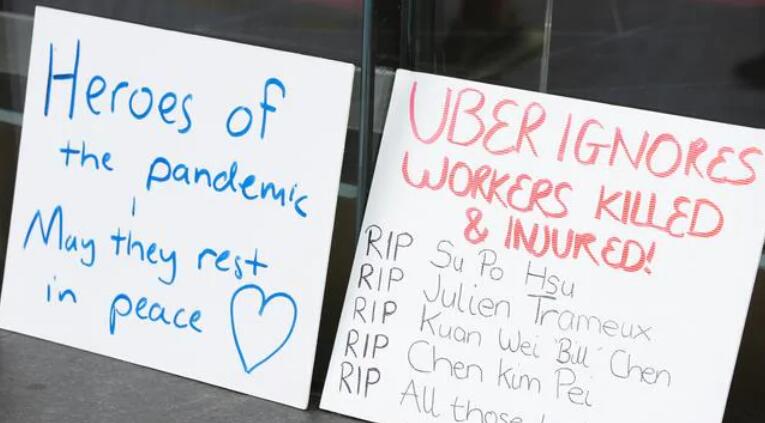 Heroes of
the pandemic
May they rest
in peace
UBER IGNORES
WORKERS KILLED
& INJURED!
RIP Su Po Hsu
RIP Julien Trameux
RIP Kuan Wei 'Bill' Chen
RIP Chen Kim Pei
RIP All those